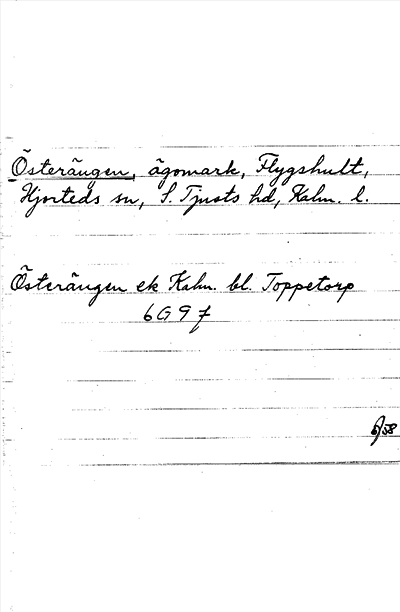 Österängen, ägomark, Flygshult,
Hjorteds sn, S. Tjusts hd, Kalm. l.
Österängen ek Kalm. bl. Toppetorp
6G 9f
58